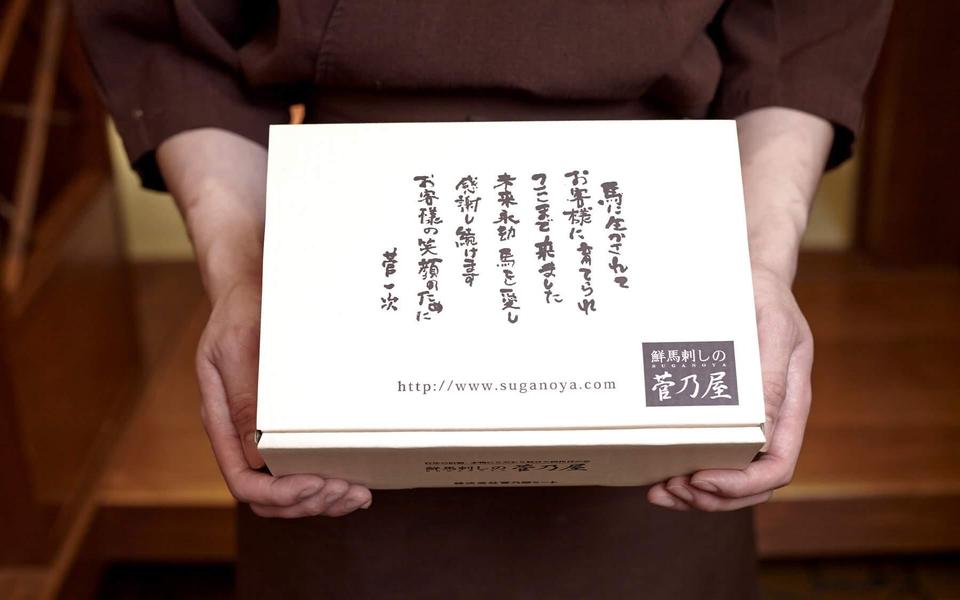 馬に生かされて
お客様に育てられ
てここまで来ました
未来永劫馬を愛し
感謝し続けます
お客様の笑顔のために
菅一次
http://www.suganoya.com
鮮馬刺しの
SUGANOYA
菅乃屋
鮮馬刺しの 菅乃屋
株式会社菅乃屋ミート